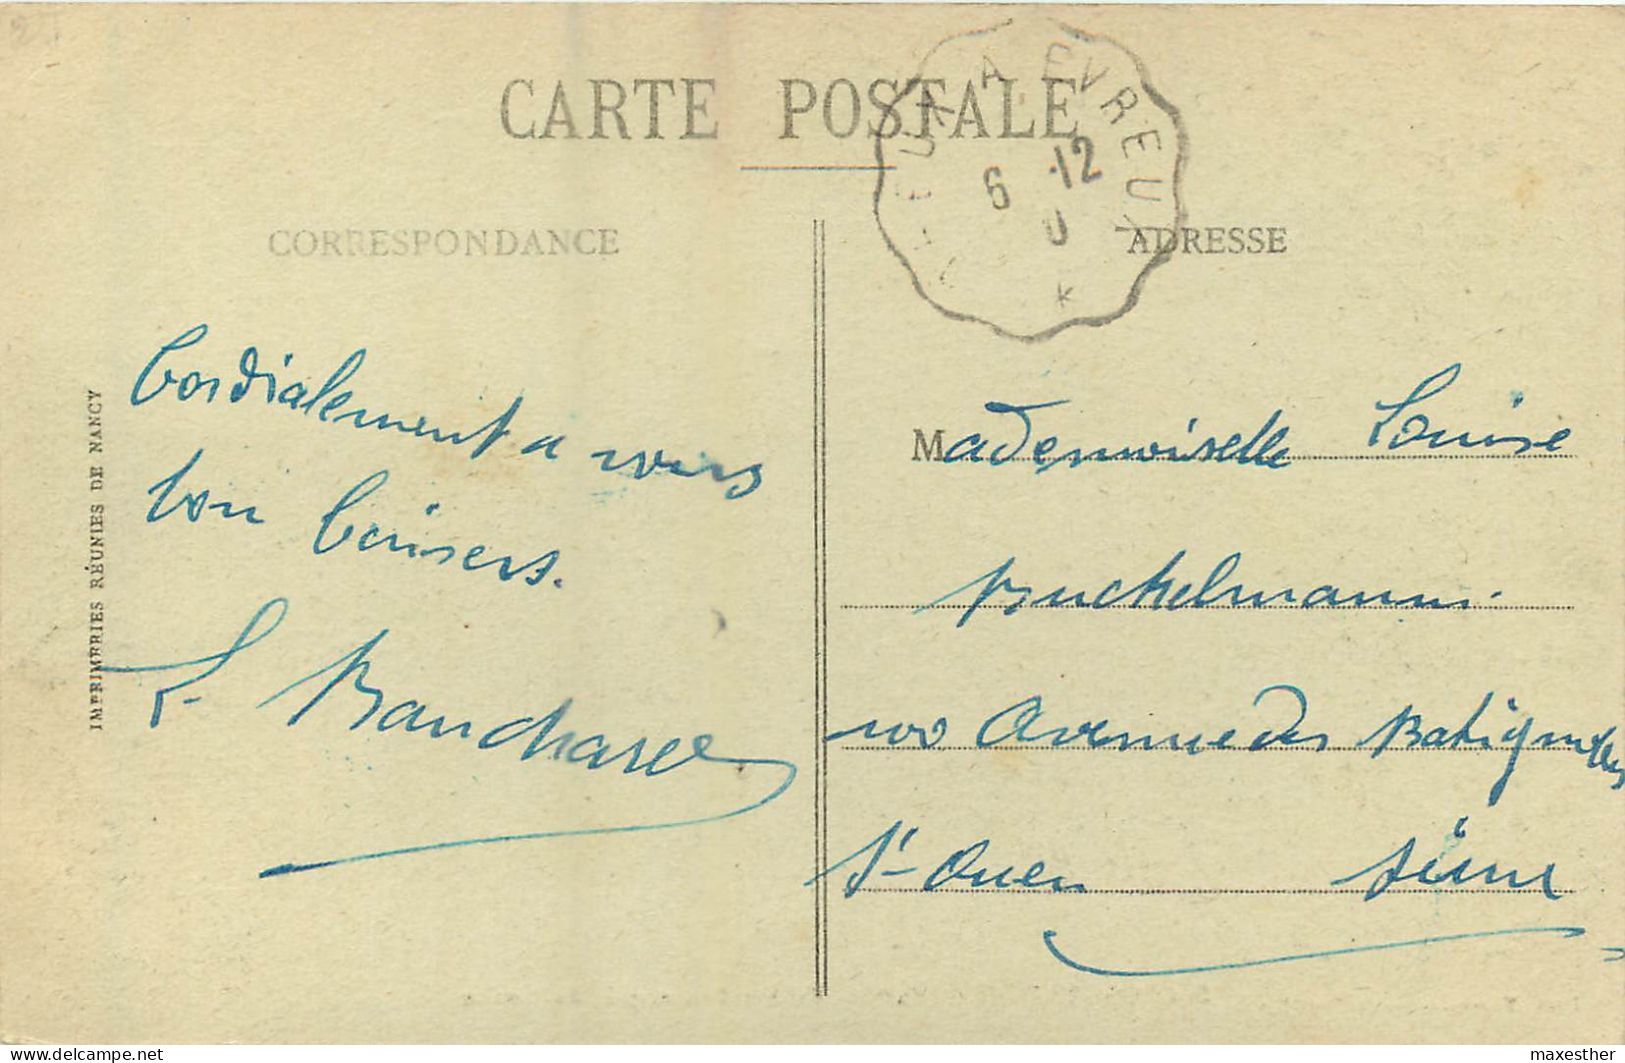 CARTE POSTALE
A EVREUX
6 -12
CORRESPONDANCE
ADRESSE
IMPRIMERIES RÉUNIES DE NANCY
Cordialement a vous
bon baisers.
Mademoiselle Louise
Buckelmann.
100 Avenue des Batignolles
St-Ouen Seine
maxesther
www.delcampe.net